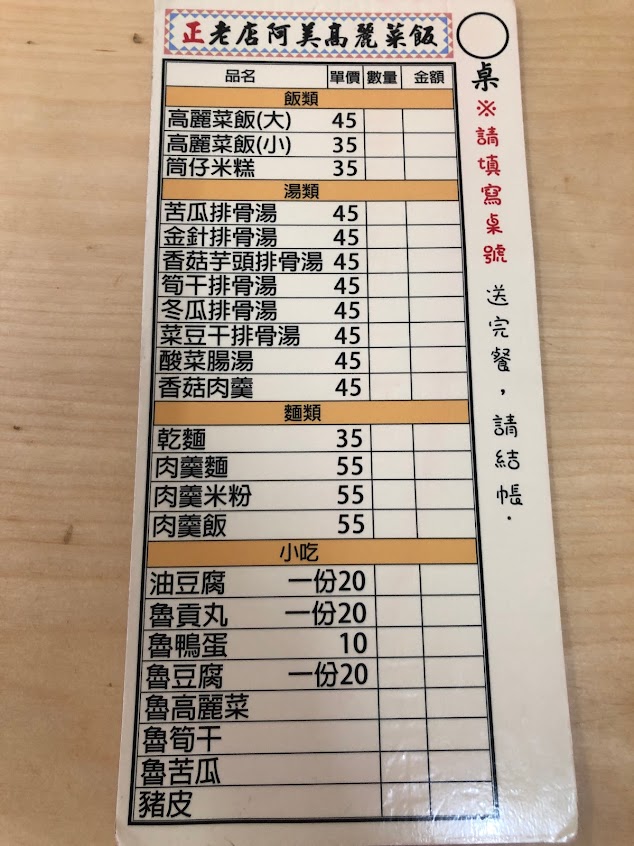 正老店阿美高麗菜飯
品名 單價 數量 金額
飯類
高麗菜飯(大) 45
高麗菜飯(小) 35
筒仔米糕 35
湯類
苦瓜排骨湯 45
金針排骨湯 45
香菇芋頭排骨湯 45
筍干排骨湯 45
冬瓜排骨湯 45
菜豆干排骨湯 45
酸菜腸湯 45
香菇肉羹 45
麵類
乾麵 35
肉羹麵 55
肉羹米粉 55
肉羹飯 55
小吃
油豆腐 一份20
魯貢丸 一份20
魯鴨蛋 10
魯豆腐 一份20
魯高麗菜
魯筍干
魯苦瓜
豬皮
桌
※請填寫桌號
送完餐，請結帳.